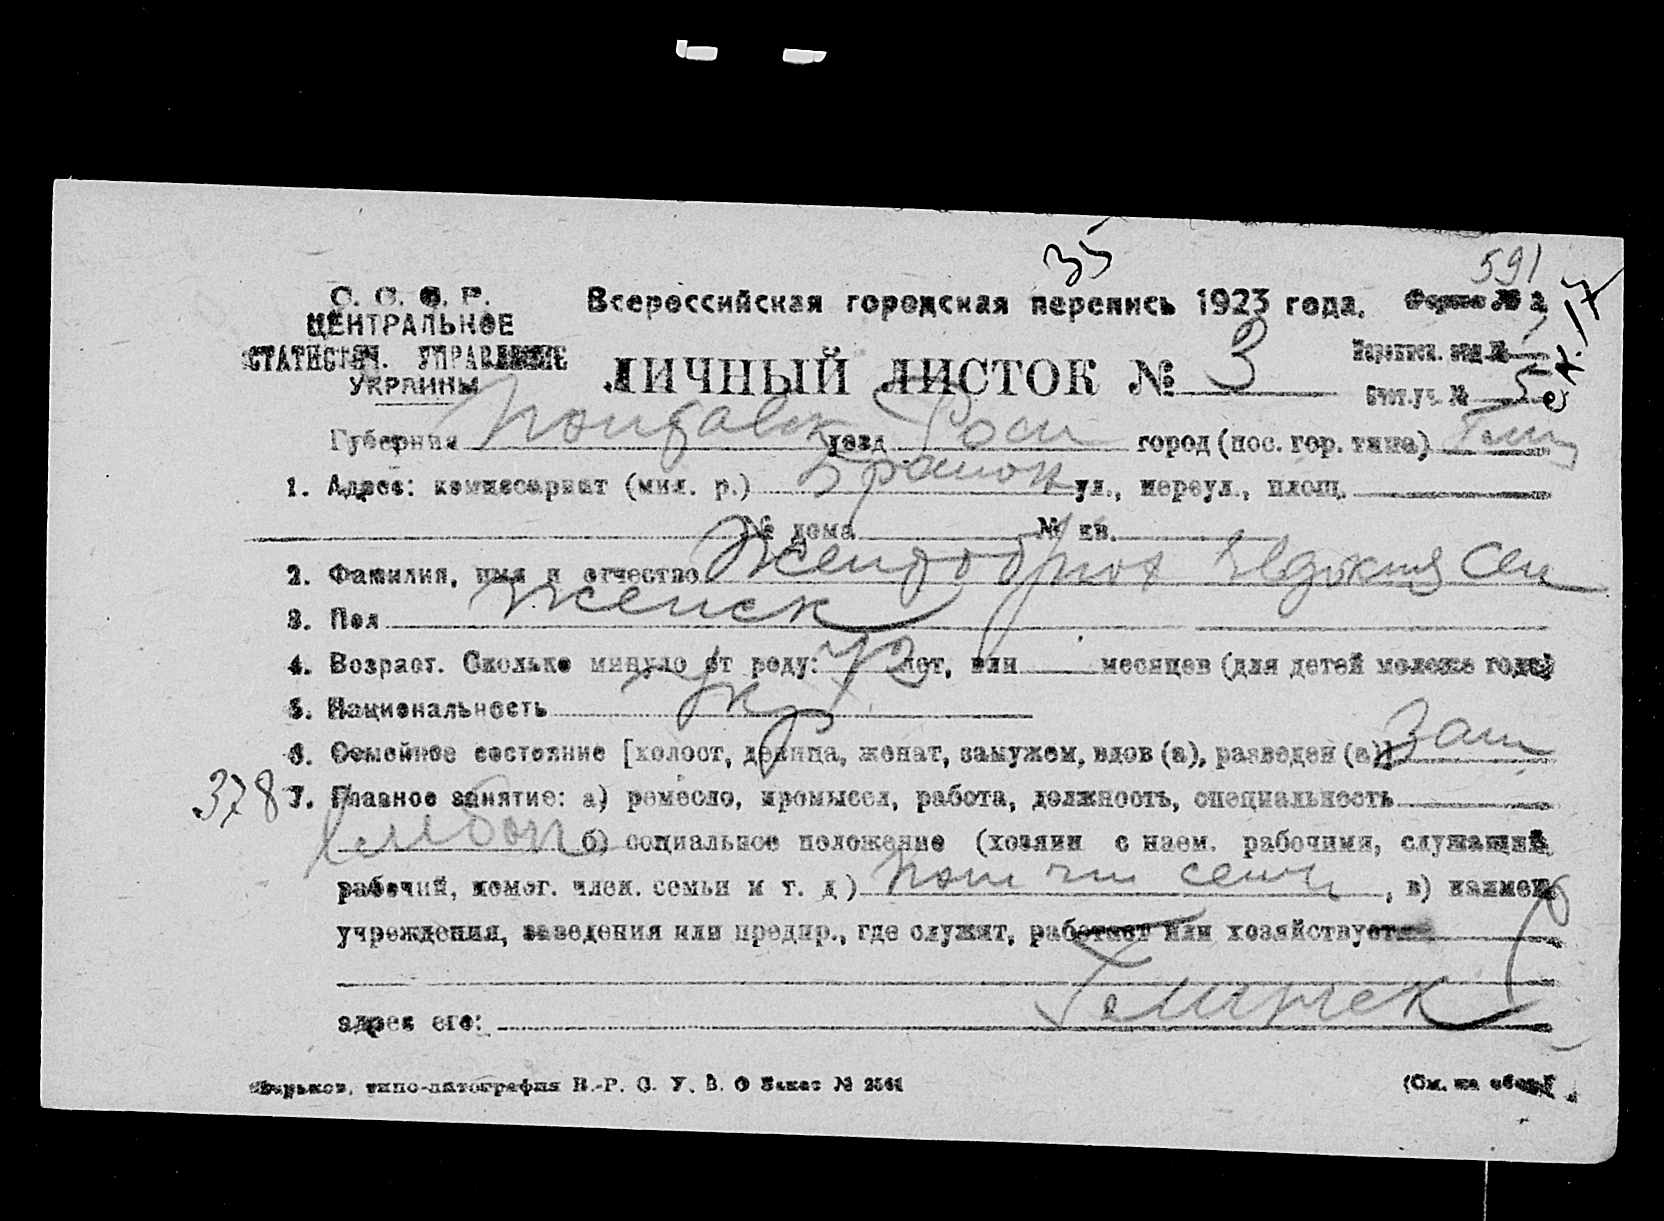 35
591
С. С. С. Р.
ЦЕНТРАЛЬНОЕ
СТАТИСТИЧ. УПРАВЛЕНИЕ
УКРАИНЫ
Всероссийская городская перепись 1923 года. Форма № 2
17
ЛИЧНЫЙ ЛИСТОК № 3
Переписн. отд. №
Счет. уч. № 5
Губерния Полтавск уезд город (пос. гор. типа)
1. Адрес: комиссариат (мил. р.) 5 район ул., переул., площ.
№ дома № кв.
2. Фамилия, имя и отчество Евдокия Сем
3. Пол женск
4. Возраст. Сколько минуло от роду: 72 лет, или месяцев (для детей моложе года)
5. Национальность укр
6. Семейное состояние [холост, девица, женат, замужем, вдов (а), разведен (а)] зам
378 7. Главное занятие: а) ремесло, промысел, работа, должность, специальность
б) социальное положение (хозяин с наем. рабочими, служащий,
рабочий, помог. член. семьи и т. д) пом чл семьи, в) наимен
учреждения, заведения или предпр., где служит, работает или хозяйствует
адрес его:
Харьков, типо-литография Н.-Р. С. У. В. О Заказ № 2561
(См. на обор.)